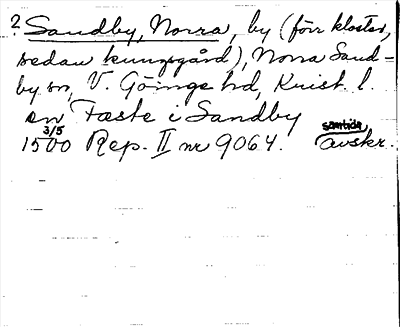 ? Sandby, Norra, by (förr kloster,
sedan kungsgård), Norra Sand-
by sn, V. Göinge hd, Krist. l.
en Tæste i Sandby
1500 3/5 Rep. II nr 9064. samtida avskr.